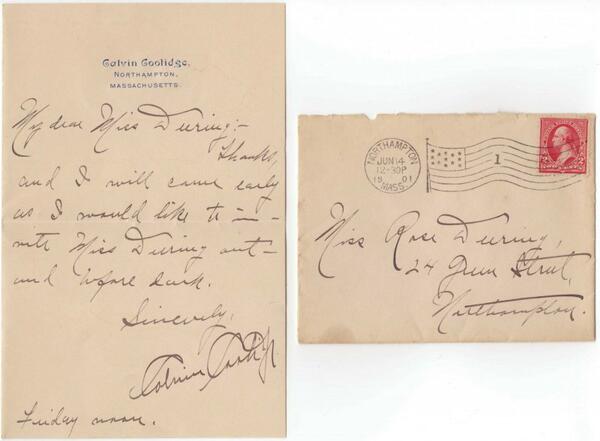 Calvin Coolidge.
NORTHAMPTON,
MASSACHUSETTS.
My dear Miss Deering:-
Thanks,
and I will come early
as I would like to in-
vite Miss Deering out-
and before dark.
Sincerely,
Calvin Coolidge
Friday noon.
NORTHAMPTON
JUN 14
12-30P
1901
MASS.
1
2 2
Miss Rose Deering,
24 Green Street,
Northampton.